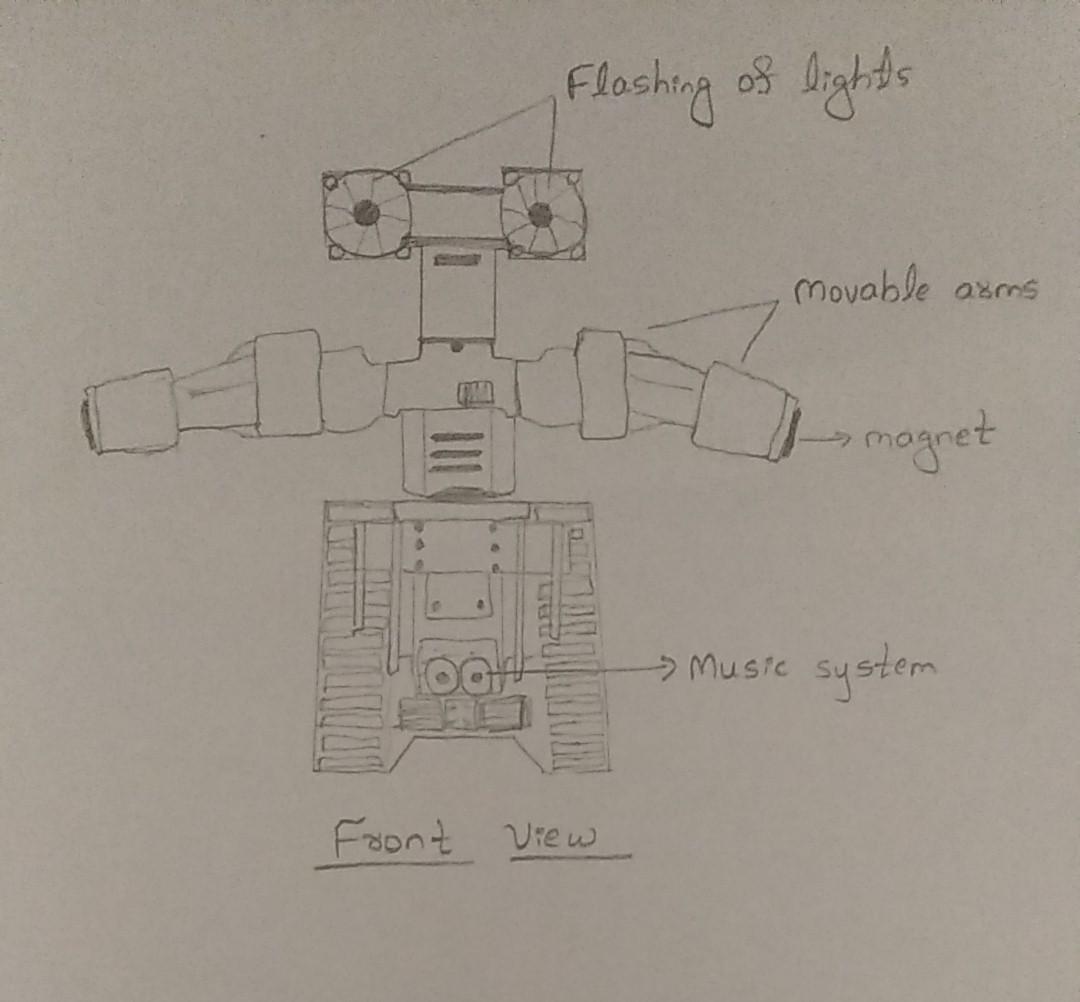 Flashing of lights
Movable arms
magnet
Music system
Front View